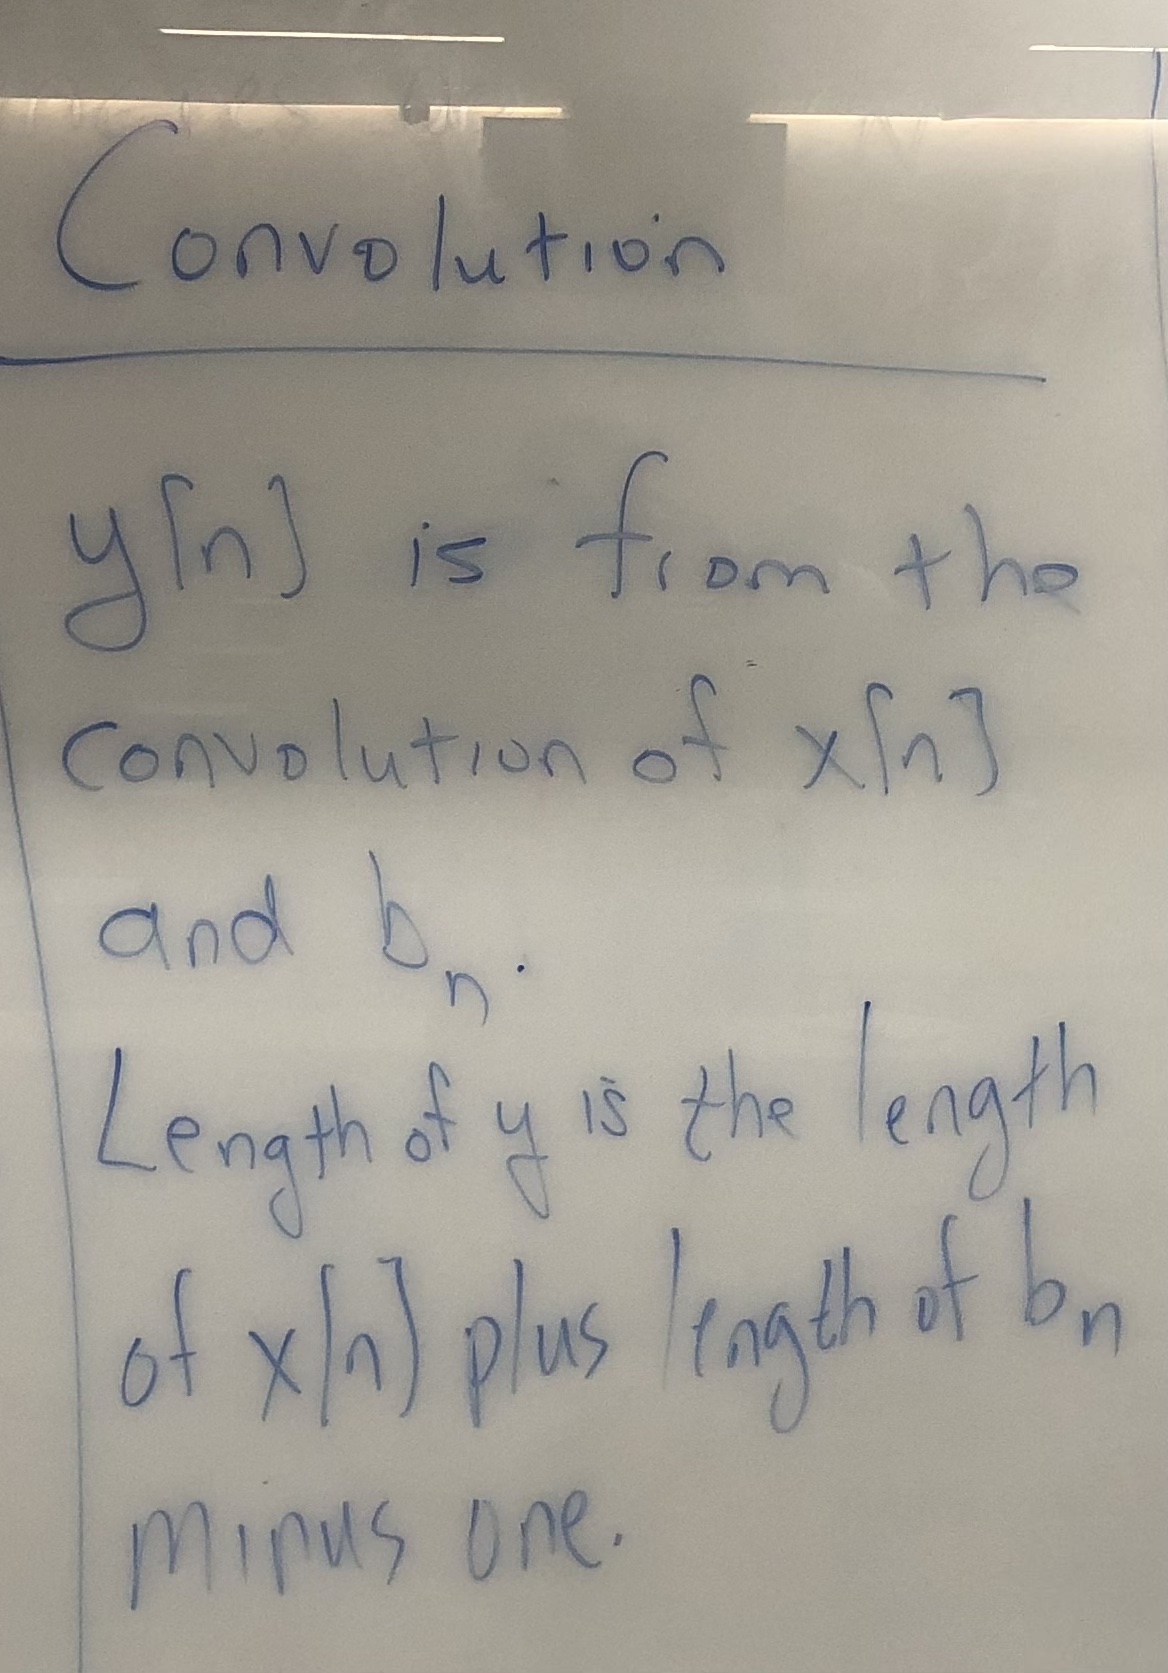 Convolution
y[n] is from the
convolution of x[n]
and bn.
Length of y is the length
of x[n] plus length of bn
minus one.